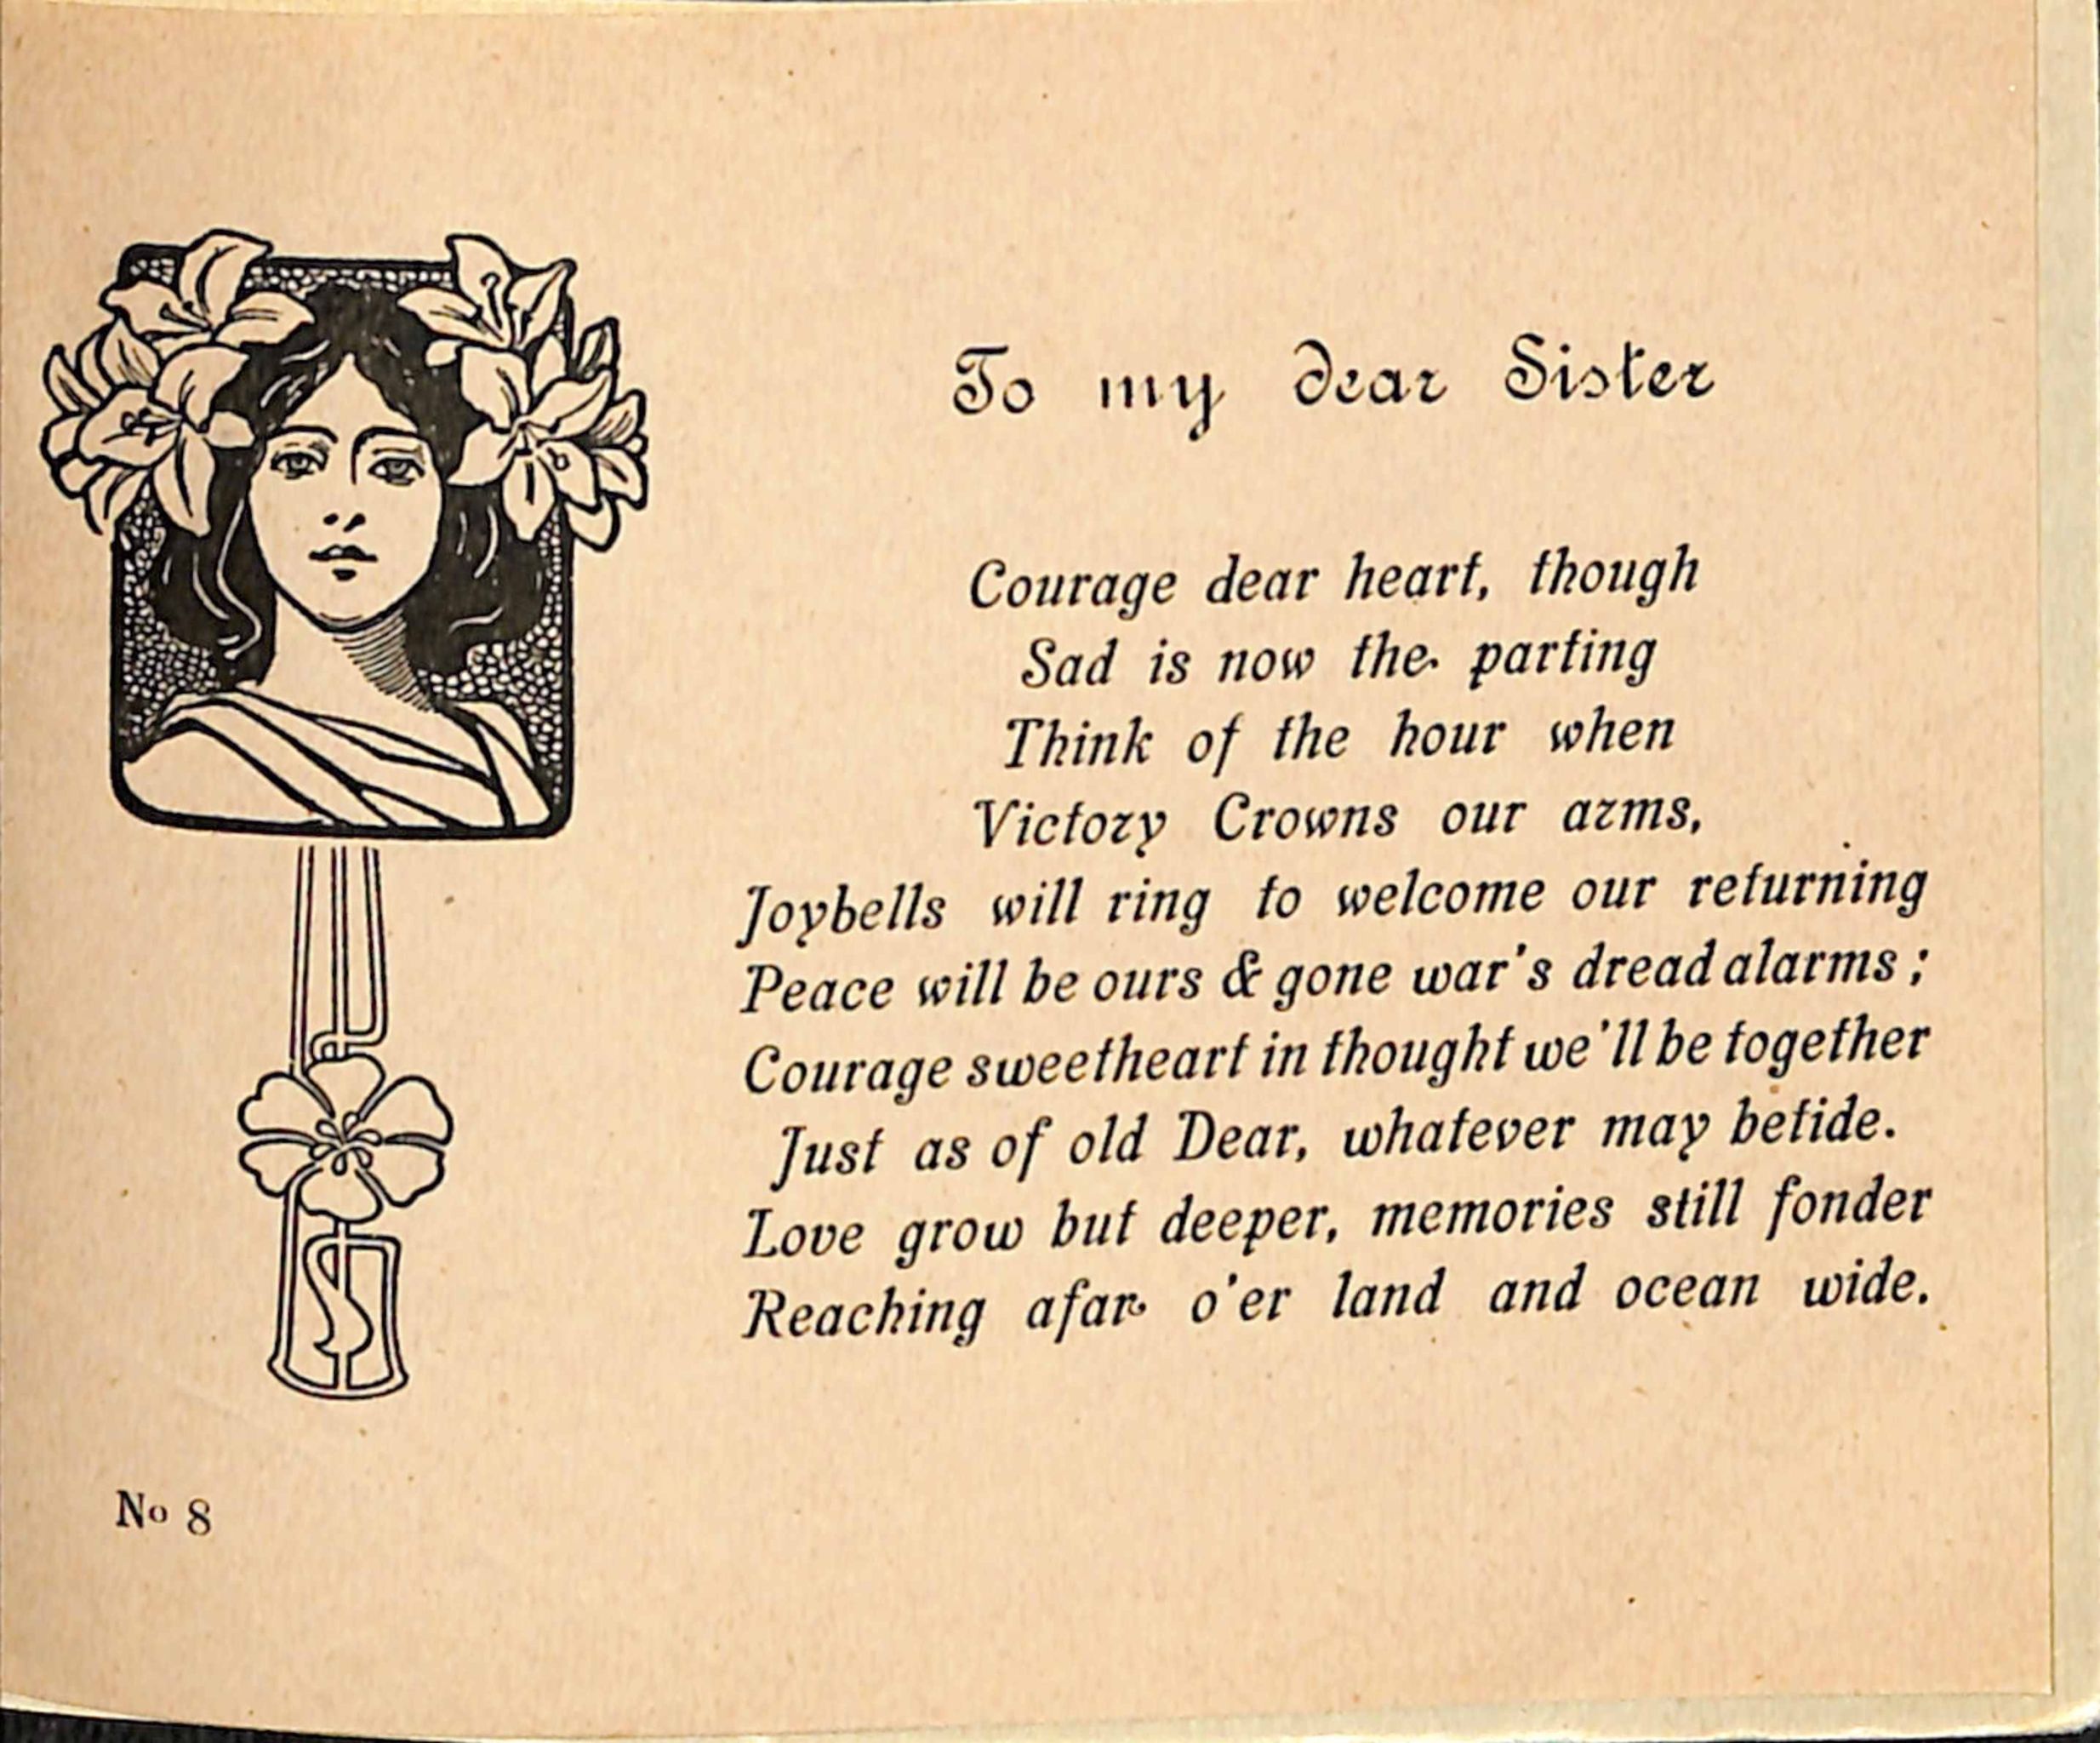 To my dear Sister
Courage dear heart, though
Sad is now the parting
Think of the hour when
Victory Crowns our arms,
Joybells will ring to welcome our returning
Peace will be ours & gone war's dread alarms ;
Courage sweetheart in thought we'll be together
Just as of old Dear, whatever may betide.
Love grow but deeper, memories still fonder
Reaching afar o'er land and ocean wide.
No 8